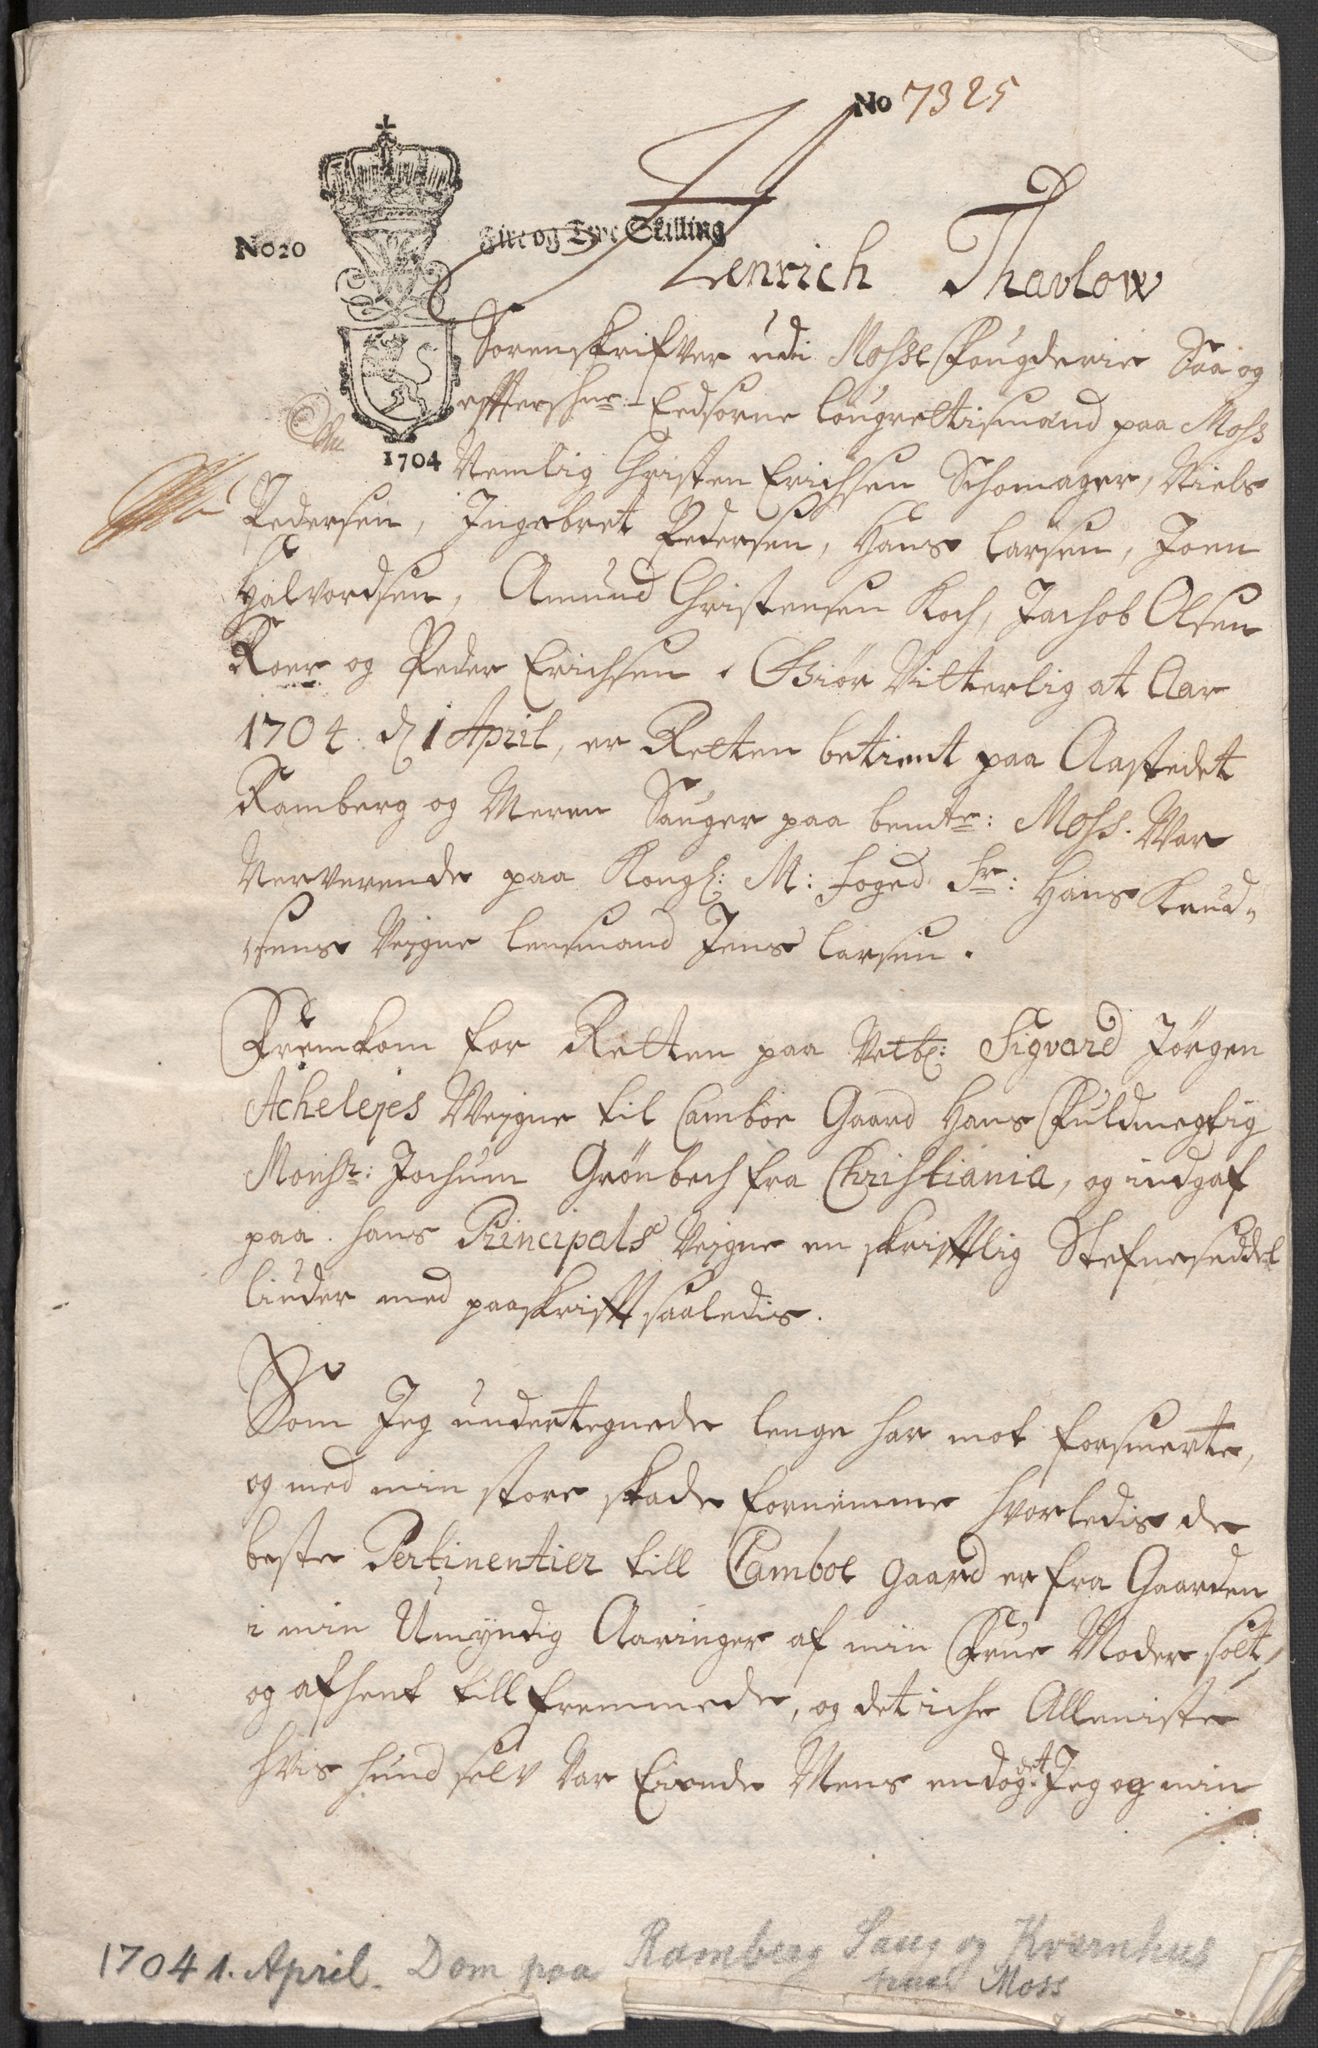 No 7325
No 20
Fire og Tyve Skilling
Henrich Thavlow
Sorenskrifver udi Mosse Fougderie Saa og
effterschne Eedsorne lougrettismænd paa Moss
1704
Nemblig Christen Erichsen Schomager, Niels
Pedersen, Ingebret Pedersen, Hans Larsen, Joen
Halvordsen, Amund Christensen Koch, Jachob Olsen
Roer og Peder Erichsen. Giør Vitterlig at Aar
1704 d 1 April, er Retten betient paa Aastedet
Ramberg og Meren Sauger paa bemte: Moss. War
Nerverende paa Kongl: M: foged Sr: Hans Knud-
sens Vejgne lensmand Jens Larsen.
Fremkom for Retten paa Velb: Sigvard Jörgen
Achelejes Wejgne til Camboe Gaard Hans Fuldmegtig
Monsr: Jochum Grönbech fra Christiania, og indgaf
paa hans Principals Vejgne en skrifftlig Stefneseddel
liuder med paaskrifft saaledis.
Som Jeg undertegnede lenge har mot forsmerte,
og med min store skade fornemme hvorledis de
beste Pertinentier till Camboe gaard er fra Gaarden
i min Umyndig Aaringer af min Frue Moder solt,
og afhent till fremmede, og det iche Alleniste
hvis hund selv var Eiende Mens endog det Jeg og min
1704 1. April. Dom paa Ramberg Saug og Kvernhus
paa Moss